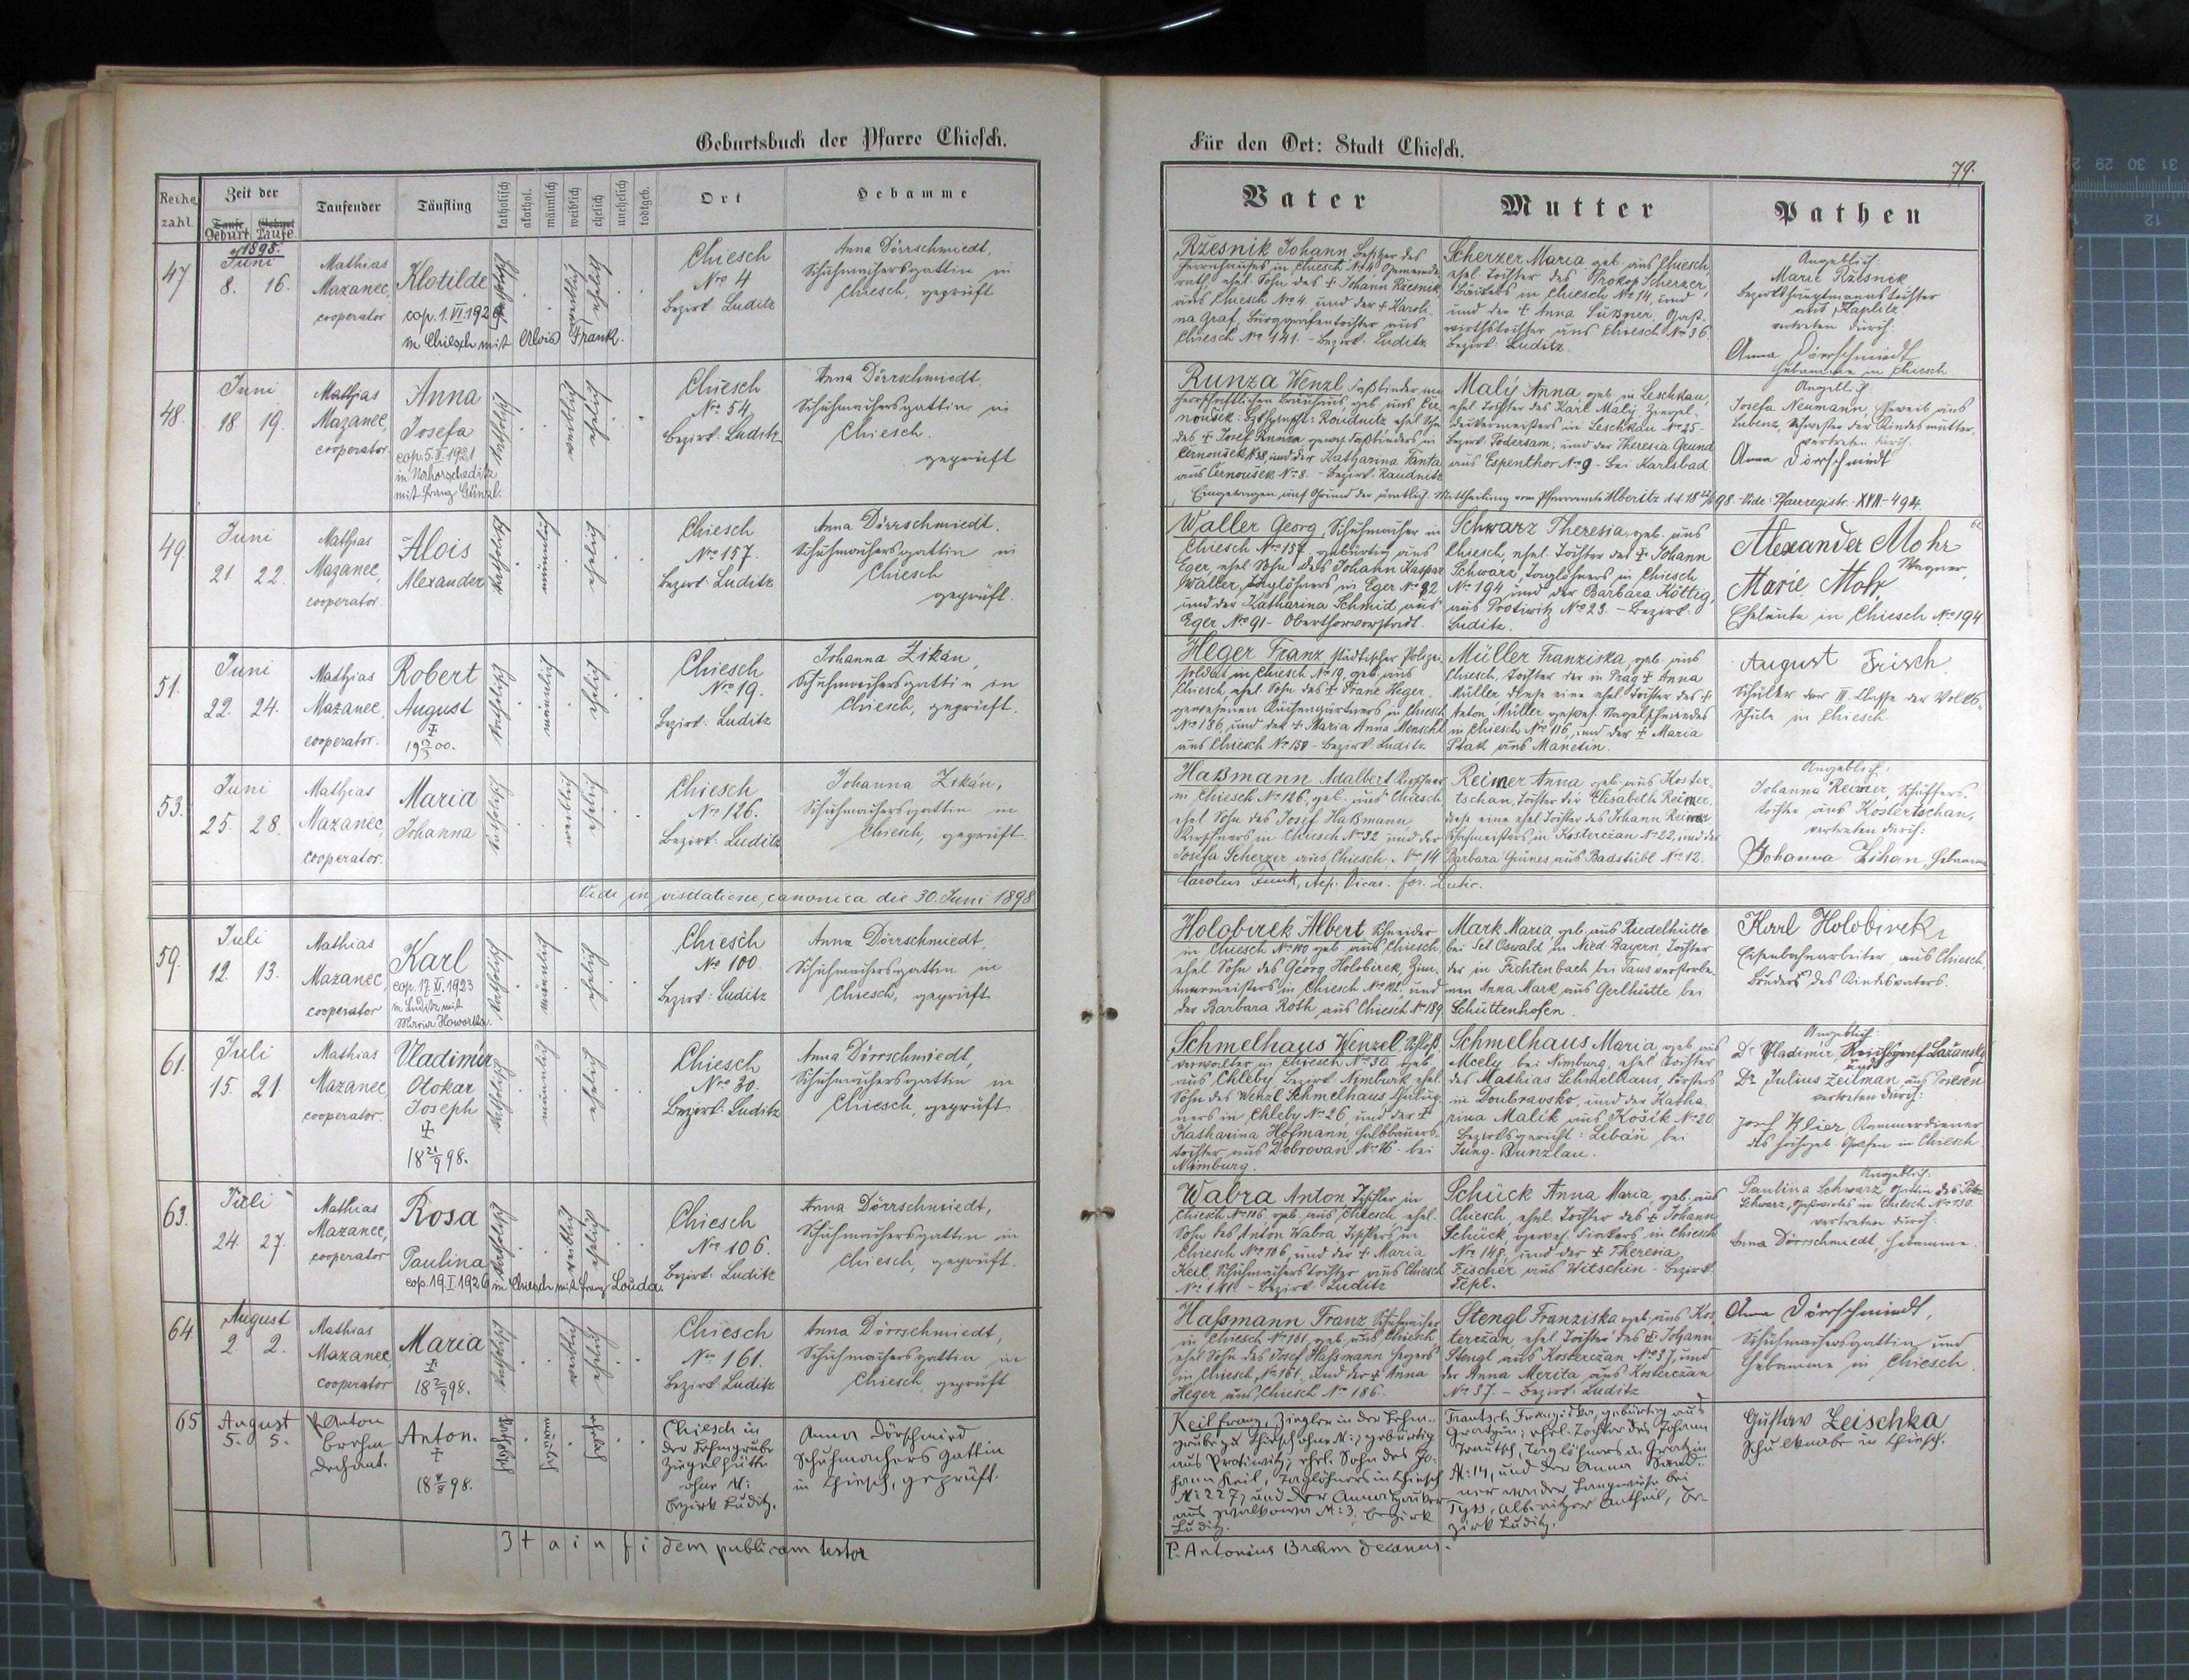 Geburtsbuch der Pfarre Chiesch.
Reihe zahl
Zeit der
Taufe Geburt
Geburt Taufe
Taufender
Täufling
katholisch
akathol.
männlich
weiblich
ehelich
unehelich
todtgeb.
Ort
Hebamme
47
1898.
Juni
8. 16.
Mathias
Mazanec,
cooperator
Klotilde
cop. 1. VI 1926
in Chiesch mit Alois Frank.
katholisch
weiblich
ehelich
Chiesch
Nro 4
Bezirk Luditz
Anna Dörrschmiedt,
Schuhmachersgattin in
Chiesch, geprüft
48.
Juni
18 19.
Mathias
Mazanec,
cooperator
Anna
Josefa
cop. 5. II. 1921
mit Franz
katholisch
weiblich
ehelich
Chiesch
Nro 54
Bezirk: Luditz
Anna Dörrschmiedt,
Schuhmachersgattin in
Chiesch.
geprüft
49.
Juni
21. 22.
Mathias
Mazanec,
cooperator.
Alois
Alexander
katholisch
männlich
ehelich
Chiesch
Nro 157.
Bezirk: Luditz
Anna Dörrschmiedt.
Schuhmachersgattin in
Chiesch
geprüft.
51.
Juni
22. 24.
Mathias
Mazanec,
cooperator.
Robert
August
‡
katholisch
männlich
ehelich
Chiesch
Nro 19.
Bezirk: Luditz
Johanna Zikán,
Schuhmachersgattin in
Chiesch, geprüft.
53.
Juni
25. 28.
Mathias
Mazanec,
cooperator.
Maria
Johanna
katholisch
weiblich
ehelich
Chiesch
Nro 126.
Bezirk: Luditz
Johanna Zikán,
Schuhmachersgattin in
Chiesch, geprüft
Vidi in visitatione canonica die 30. Juni 1898
59.
Juli
12. 13.
Mathias
Mazanec,
cooperator
Karl
cop. 17. XI. 1923
in Luditz mit
Maria
katholisch
männlich
ehelich
Chiesch
No 100.
Bezirk: Luditz
Anna Dörrschmiedt,
Schuhmachersgattin in
Chiesch, geprüft.
61.
Juli
15. 21.
Mathias
Mazanec,
cooperator.
Vladimir
Otokar
Joseph
‡
18 21/9 98.
katholisch
männlich
ehelich
Chiesch
Nro 30.
Bezirk: Luditz
Anna Dörrschmiedt,
Schuhmachersgattin in
Chiesch, geprüft
63.
Juli
24. 27.
Mathias
Mazanec,
cooperator
Rosa
Paulina
cop. 19. I. 1926 in Chiesch mit Franz Louda.
katholisch
weiblich
ehelich
Chiesch
Nro 106.
Bezirk: Luditz
Anna Dörrschmiedt,
Schuhmachersgattin in
Chiesch, geprüft.
64.
August
2 2.
Mathias
Mazanec,
cooperator
Maria
‡
18 2/9 98.
katholisch
weiblich
ehelich
Chiesch
No 161.
Bezirk: Luditz
Anna Dörrschmiedt,
Schuhmachersgattin in
Chiesch, geprüft
65
August
5. 5.
P. Anton
Brehm
Dechant.
Anton.
‡
katholisch
männlich
ehelich
Chiesch in
der Lehmgrube
Ziegelhütte
ohne N:
Bezirk Luditz.
Anna Dörschmied
Schuhmachers Gattin
in Chiesch, geprüft.
Ita in fidem publicam testor
Für den Ort: Stadt Chiesch.
79.
Vater
Mutter
Pathen
Ržesnik Johann, Besitzer des
Herrnhauses in Chiesch No 4, Gemeinde-
rath, ehel. Sohn des ‡ Johann Ržesnik
aus Chiesch No 4, und der ‡ Karoli-
na Graf, Burggrafentochter aus
Chiesch No 141. - Bezirk: Luditz
Scherzer Maria geb. aus Chiesch,
ehel. Tochter des Prokop Scherzer,
Bäckers in Chiesch No 14, und
und der ‡ Anna Süßner, Gast-
wirthstochter aus Chiesch No 36.
Bezirk: Luditz.
Angeblich:
Marie Ržesnik
Bezirkshauptmannstochter
aus Kaplitz
vertreten durch:
Anna Dörrschmiedt
Hebamme in Chiesch
Runza Wenzl, Faßbinder im
herrschaftlichen Bräuhaus geb. aus Čer-
noušek: Bezhptmsch: Roudnitz ehel. Sohn
des ‡ Josef Runza gewes. Faßbinders in
Černoušek N 38 und der Katharina Fanta
aus Černoušek No 8. - Bezirk: Raudnitz
Malý Anna, geb. in Leschkau,
ehel. Tochter des Karl Malý, Ziegel-
deckermeisters in Leschkau No 25 -
Bezirk Podersam, und der Theresia Grund
aus Espenthor No 9 - bei Karlsbad
Angeblich:
Josefa Neumann, Eheweib aus
Lubenz, Schwester der Kindesmutter.
vertreten durch:
Anna Dörrschmiedt
Eingetragen auf Grund der ämtlich. Mittheilung vom Pfarramte Alberitz d.d. 98. - Vide: Pfarregistr. XXII - 494.
Waller Georg, Schuhmacher in
Chiesch No 157, gebürtig aus
Eger, ehel. Sohn des Johann Kaspar
Waller, Taglöhners in Eger No 82
und der Katharina Schmid, aus
Eger No 91 - Oberthorvorstadt.
Schwarz Theresia, geb. aus
Chiesch, ehel. Tochter des ‡ Johann
Schwarz, Taglöhners in Chiesch
No 194 und der Barbara Köttig,
aus Protiwitz No 23. - Bezirk:
Luditz.
Alexander Mohr
Wagner,
Marie Mohr
Eheleute in Chiesch No 194
Heger Franz, städtischer Polizei-
soldat in Chiesch No 19, geb. aus
Chiesch, ehel. Sohn des ‡ Franz Heger,
gewesenen Küchengärtners in Chiesch
No 186, und der ‡ Maria Anna Menschl
aus Chiesch No 150 - Bezirk: Luditz
Müller Franziska, geb. aus
Chiesch, Tochter der in Prag ‡ Anna
Müller diese eine ehel. Tochter des ‡
Anton Müller gewes. Nagelschmiedes
in Chiesch No 116, und der ‡ Maria
Ptak aus Manetin.
August Frisch
Schüler der III. Classe der Volks-
schule in Chiesch
Haßmann Adalbert, Kirschner
in Chiesch No 126, geb. aus Chiesch
ehel. Sohn des Josef Haßmann
Kirschners in Chiesch No 32 und der
Josefa Scherzer aus Chiesch No 14
Reimer Anna geb. aus Koster-
tschan, Tochter der Elisabeth Reimer,
diese eine ehel. Tochter des Johann Reimer
Schafmeisters in Kosterčan No 22, und der
Barbara Grünes aus Badstübl No 12.
Angeblich:
Johanna Reimer, Schaffers-
tochter aus Kostertschan,
vertreten durch:
Johanna Zikan, Hebamme
Carolus Funk, Aep. Vicar. for. Lutic.
Holobirek Albert Schneider
in Chiesch No 100 geb. aus Chiesch,
ehel. Sohn des Georg Holobirek, Zim-
mermeisters in Chiesch und
der Barbara Roth, aus Chiesch No 189.
Mark Maria, geb. aus Riedelhütte
bei Sct Oswald in Nied. Bayern, Tochter
der in Fichtenbach bei Taus verstorbe-
nen Anna Mark, aus Gerlhütte bei
Schüttenhofen.
Karl Holobirek
Eisenbahnarbeiter aus Chiesch,
Bruder des Kindesvaters.
Schmelhaus Wenzel, Schloß-
verwalter in Chiesch No 30. geb.
aus Chleby, Bezirk Nimburk, ehel.
Sohn des Wenzl Schmelhaus,
ners in Chleby No 26, und der ‡
Katharina Hofmann, Halbbauers-
tochter aus Dobrovan No 16. bei
Nimburg.
Schmelhaus Maria, geb. aus
Mcely, bei Nimburg, ehel. Tochter
des Mathias Schmelhaus, Försters
in Doubravsko, und der Katha-
rina Malik aus Košík No 20
Bezirksgericht: Libáň bei
Jung-Bunzlau.
Angeblich:
Dr Vladimir Reichsgraf Lažansky
und
Dr. Julius Zeilman, aus Pilsen
vertreten durch:
Josef Klier Kammerdiener
des hochgeb. Grafen in Chiesch
Wabra Anton, Tischler in
Chiesch No 106, geb. aus Chiesch ehel.
Sohn des Anton Wabra, Tischlers in
Chiesch No 106, und der ‡ Maria
Keil, Schuhmacherstochter aus Chiesch
No 141 - Bezirk: Luditz
Schück Anna Maria, geb. aus
Chiesch, ehel. Tochter des ‡ Johann
Schück, gewes. in Chiesch
No 148, und der ‡ Theresia
Fischer aus Witschin - Bezirk:
Tepl.
Angeblich:
Paulina Schwarz, Gattin des
Schwarz, Gastwirtes in Chiesch No 150.
vertreten durch:
Anna Dörrschmiedt, Hebamme.
Haßmann Franz, Schuhmacher
in Chiesch No 161, geb. aus Chiesch
ehel. Sohn des Josef Haßmann Hegers
in Chiesch, No 161. und der ‡ Anna
Heger aus Chiesch No 186.
Stengl Franziska, geb. aus Kos-
terčan, ehel. Tochter des ‡ Johann
Stengl aus Kosterčan No 37, und
der Anna Merita aus Kosterčan
No 37 - Bezirk: Luditz
Anna Dörrschmiedt,
Schuhmachersgattin und
Hebamme in Chiesch
Keil Franz, Ziegler in der Lehm-
grube zu Chiesch ohne N:; gebürtig
aus Protiwitz; ehel. Sohn des Jo-
hann Keil, Taglöhners in Chiesch
N: 227, und der Anna
aus N: 3, Bezirk
Luditz.
Trautsch Franziska, gebürtig aus
Gratzin; ehel. Tochter des Johann
Trautsch, Taglöhners in Gratzin
N: 14, und der Anna Sand-
ner von der Langwiese bei
Tyss, Alberitzer Antheil, Be-
zirk Luditz.
Gustav Zeischka
Schulknabe in Chiesch.
P. Antonius Brehm decanus.